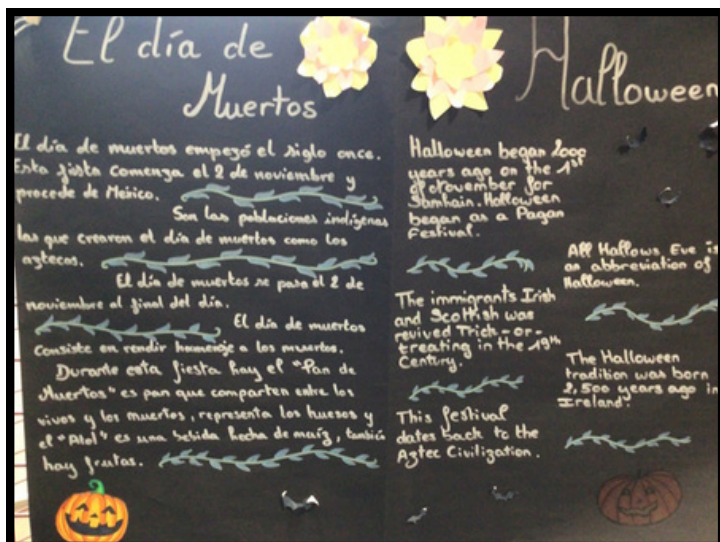 El día de
Muertos
El día de muertos empezó el siglo once.
Esta fista comenza el 2 de noviembre y
procede de Mexico.
Son las poblaciones indígenas
las que crearon el día de muertos como los
aztecas.
El día de muertos se pasa el 2 de
noviembre al final del día.
El día de muertos
consiste en rendir homenaje a los muertos.
Durante esta fiesta hay el "Pan de
Muertos" es pan que comparten entre los
vivos y los muertos, representa los huesos y
el "Atol" es una bebida hecha de maíz, también
hay frutas.
Halloween
Halloween began 2000
years ago on the 1st
of november for
Samhain. Halloween
began as a Pagan
Festival.
The immigrants Irish
and Scottish was
revived Trick-or-
treating in the 19th
Century.
This festival
dates back to the
Aztec Civilization.
All Hallows Eve is
an abbreviation of
Halloween.
The Halloween
tradition was born
2,500 years ago in
Ireland.